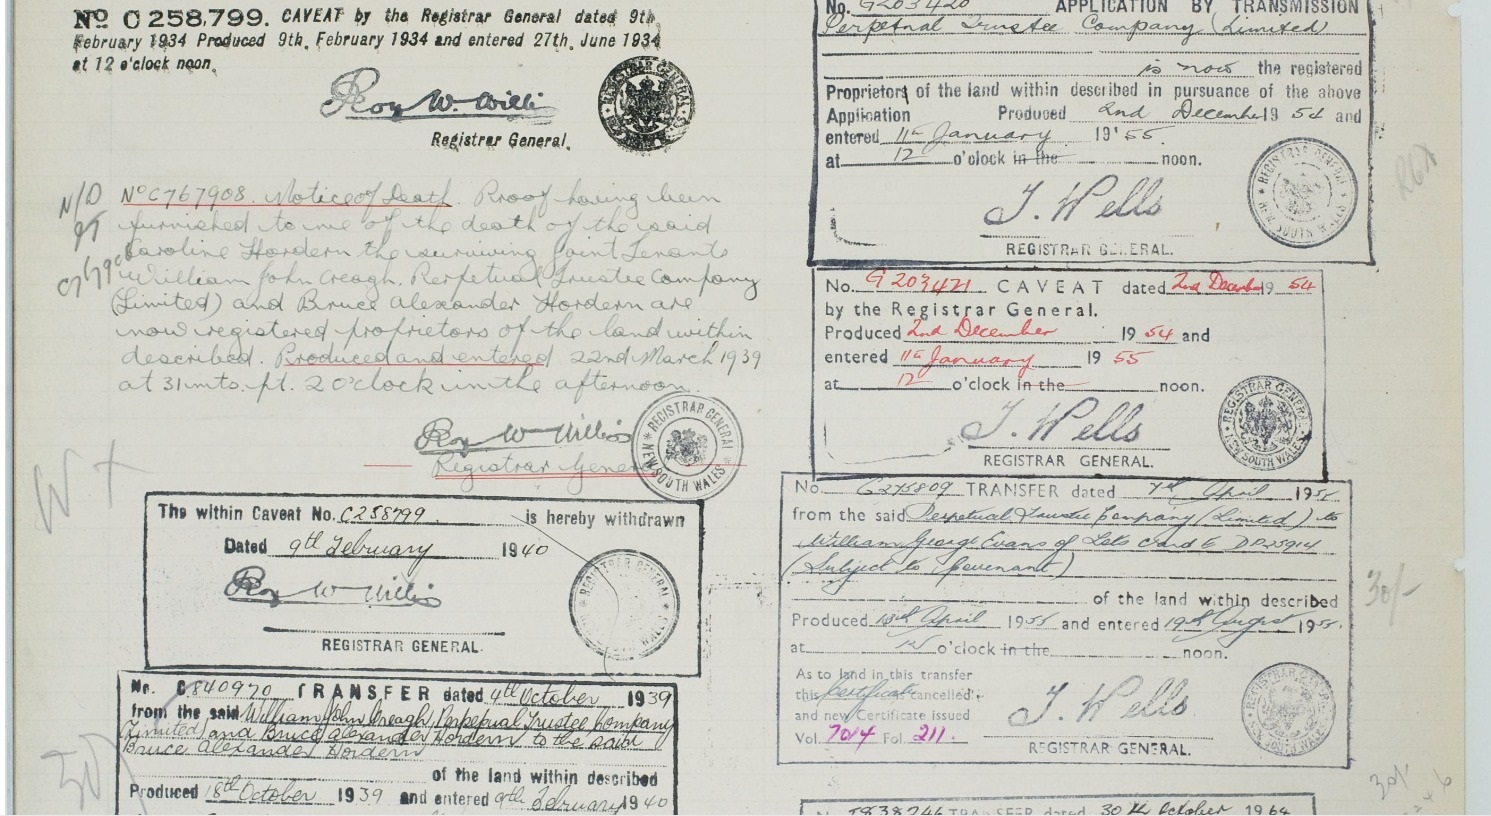 No C 258,799. CAVEAT by the Registrar General dated 9th.
February 1934 Produced 9th. February 1934 and entered 27th. June 1934
at 12 o'clock noon.
Roy W. Willis
Registrar General.
REGISTRAR GENERAL
N/D
No C767908. Notice of Death. Proof having been
furnished to me of the death of the said
Caroline Hordern the surviving Joint Tenants
William John Creagh. Perpetual Trustee Company
(Limited) and Bruce Alexander Hordern are
now registered proprietors of the land within
described. Produced and entered 22nd March 1939
at 31 mts. pt. 2 o'clock in the afternoon.
Roy W Willis
Registrar General
REGISTRAR GENERAL
NEW SOUTH WALES
The within Caveat No. C258799 is hereby withdrawn
Dated 9th February 1940
Roy W Willis
REGISTRAR GENERAL.
REGISTRAR GENERAL
NEW SOUTH WALES
No. C840970 TRANSFER dated 4th October 1939
from the said William John Creagh, Perpetual Trustee Company
(Limited) and Bruce Alexander Hordern to the said
Bruce Alexander Hordern
of the land within described
Produced 18th October 1939 and entered 9th February 1940
No. G203420 APPLICATION BY TRANSMISSION
Perpetual Trustee Company (Limited)
is now the registered
Proprietors of the land within described in pursuance of the above
Application Produced 2nd December 1954 and
entered 11th January 19'55.
at 12 o'clock in the noon.
J. Wells
REGISTRAR GENERAL.
REGISTRAR GENERAL
NEW SOUTH WALES
No. G203421 CAVEAT dated 2nd December 1954
by the Registrar General.
Produced 2nd December 1954 and
entered 11th January 1955
at 12 o'clock in the noon.
J. Wells
REGISTRAR GENERAL.
REGISTRAR GENERAL
NEW SOUTH WALES
No. G275809 TRANSFER dated April 195
from the said Perpetual Trustee Company (Limited) to
William George Evans of Lots C and E DP25914
(Subject to Covenant)
of the land within described
Produced 13th April 1955 and entered 19th August 1955.
at 12 o'clock in the noon.
As to land in this transfer
this Certificate cancelled
and new Certificate issued
Vol. 7014 Fol. 211.
J. Wells
REGISTRAR GENERAL.
REGISTRAR GENERAL
NEW SOUTH WALES
30/-
TRANSFER dated 30th October 1964